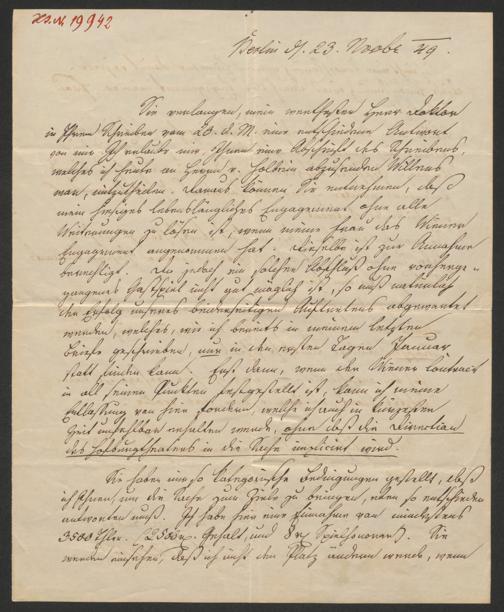 H.I.N. 19942
Berlin d. 23. Novbr 49.
Sie verlangen, mein werthester Herr Doktor
in Ihrem Schreiben vom 20. d. M. eine entschiedene Antwort
von mir. Ich erlaube mir Ihnen eine Abschrift des Schreibens,
welches ich heute an Herrn v. Holbein abzusenden Willens
war, mitzutheilen. Daraus können Sie entnehmen, daß
mein hiesiges lebenslängliches Engagement ohne alle
Weiterungen zu lösen ist, wenn meine Frau das Wiener
Engagement angenommen hat. Dieselbe ist zur Annahme
berechtigt. Da jedoch ein solcher Abschluß ohne vorherge-
gangenes Gastspiel nicht gut möglich ist, so muß natürlich
der Erfolg unseres beiderseitigen Auftretens abgewartet
werden, welches, wie ich bereits in meinem letzten
Briefe geschrieben, nur in den ersten Tagen Januar
statt finden kann. Erst dann, wenn der Wiener Contract
in all seinen Punkten festgestellt ist, kann ich meine
Entlassung von hier fordern, welche ich auch in kürzester
Zeit unfehlbar erhalten werde, ohne daß die Direction
des Hofburgtheaters in die Sache implicirt wird.
Sie haben mir so kategorische Bedingungen gestellt, daß
ich Ihnen, um die Sache zum Ziele zu bringen, eben so entschieden
antworten muß. Ich habe hier eine Einnahme von mindestens
3500 Thlr. (2500 Gehalt, und Spielhonorar). Sie
werden einsehen, daß ich nicht den Platz ändern werde, wenn